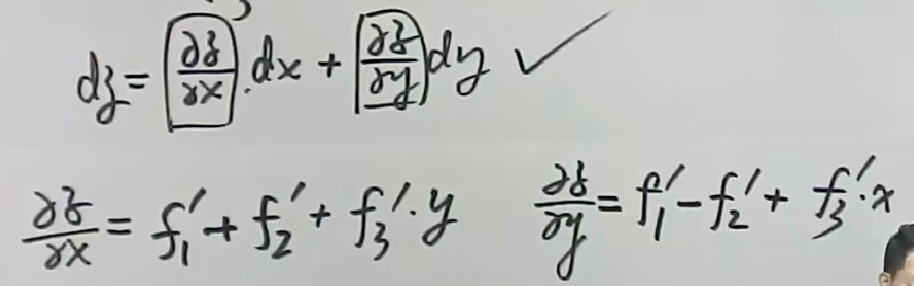 dz = ∂z/∂x · dx + ∂z/∂y dy ✓
∂z/∂x = f₁′ + f₂′ + f₃′ · y    ∂z/∂y = f₁′ − f₂′ + f₃′ · x